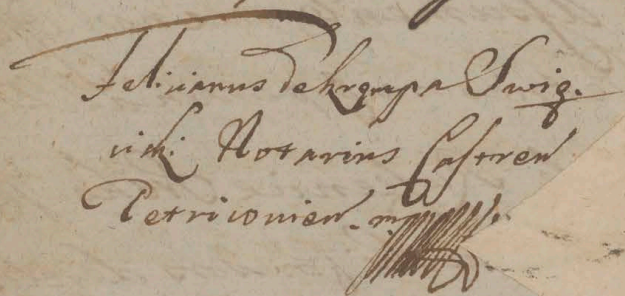 Felicianus de krempa Swig.
icki Notarius Castren
Petricouien. m